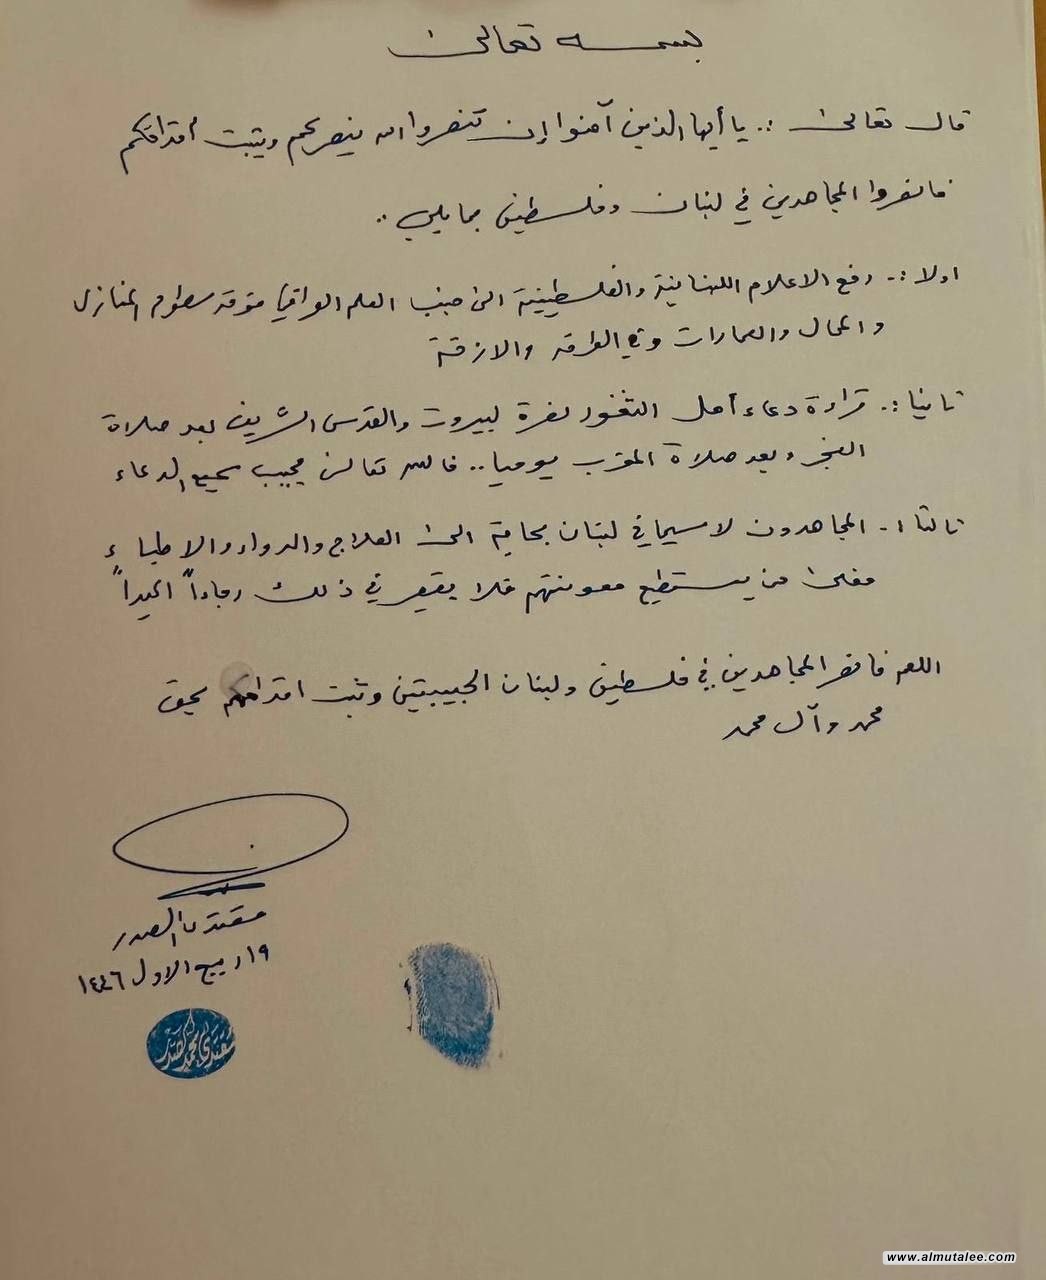 بسمه تعالى
قال تعالى :. يا أيها الذين آمنوا إن تنصروا الله ينصركم ويثبت أقدامكم
فانصروا المجاهدين في لبنان وفلسطين بما يلي ..
اولا :. رفع الاعلام اللبنانية والفلسطينية الى جنب العلم العراقي فوق سطوح المنازل
والمحال والعمارات وفي الطرق والازقة
ثانيا :. قراءة دعاء أهل الثغور نصرة لبيروت والقدس الشريف بعد صلاة
الفجر وبعد صلاة المغرب يوميا .. فالله تعالى مجيب سميع الدعاء
ثالثا :. المجاهدون لا سيما في لبنان بحاجة الى العلاج والدواء والاطباء
فعلى من يستطيع معونتهم فلا يقصر في ذلك رجاءاً اكيداً
اللهم فانصر المجاهدين في فلسطين ولبنان الحبيبتين وثبت اقدامهم بحق
محمد وآل محمد
مقتدى الصدر
١٩ ربيع الاول ١٤٤٦
مقتدى محمد الصدر
www.almutalee.com